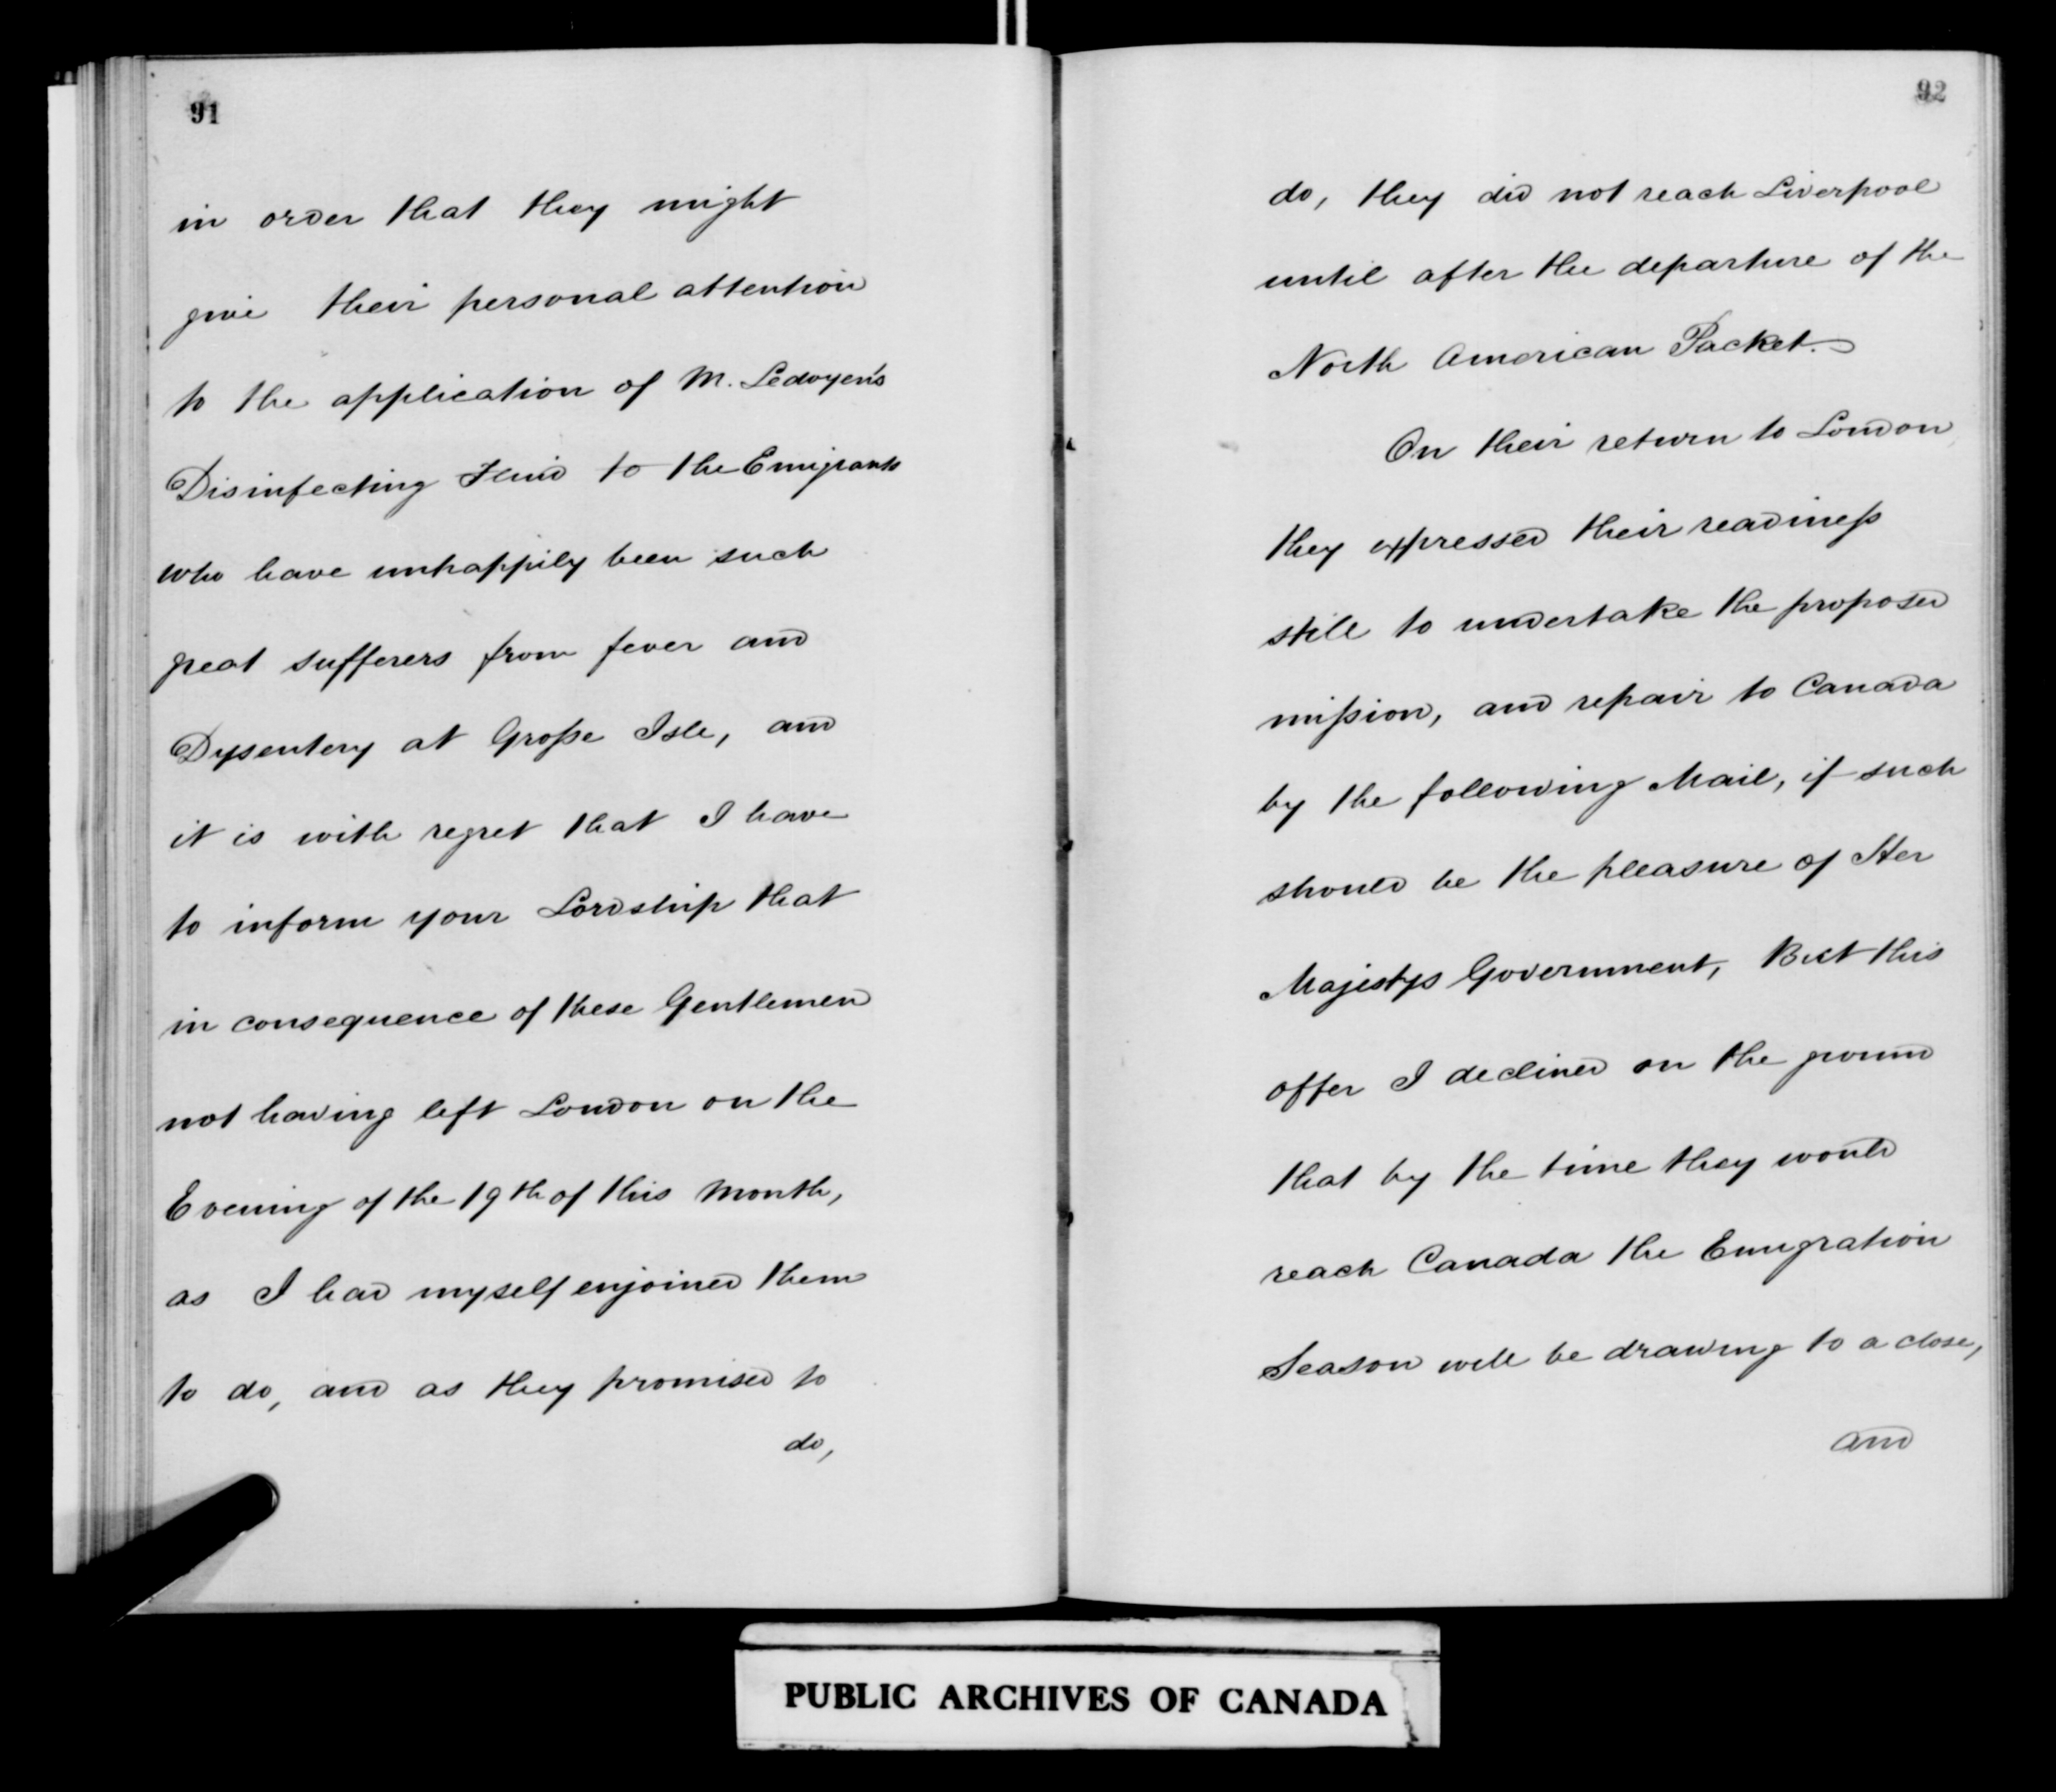 91
in order that they might
give their personal attention
to the application of M. Ledoyen's
Disinfecting Fluid to the Emigrants
who have unhappily been such
great sufferers from fever and
Dysentery at Grosse Isle, and
it is with regret that I have
to inform your Lordship that
in consequence of these Gentlemen
not having left London on the
Evening of the 19th of this month,
as I had myself enjoined them
to do, and as they promised to
do,
92
do, they did not reach Liverpool
until after the departure of the
North American Packet.
On their return to London
they expressed their readiness
still to undertake the proposed
mission, and repair to Canada
by the following Mail, if such
should be the pleasure of Her
Majestys Government, But this
offer I declined on the ground
that by the time they would
reach Canada the Emigration
Season will be drawing to a close,
and
PUBLIC ARCHIVES OF CANADA